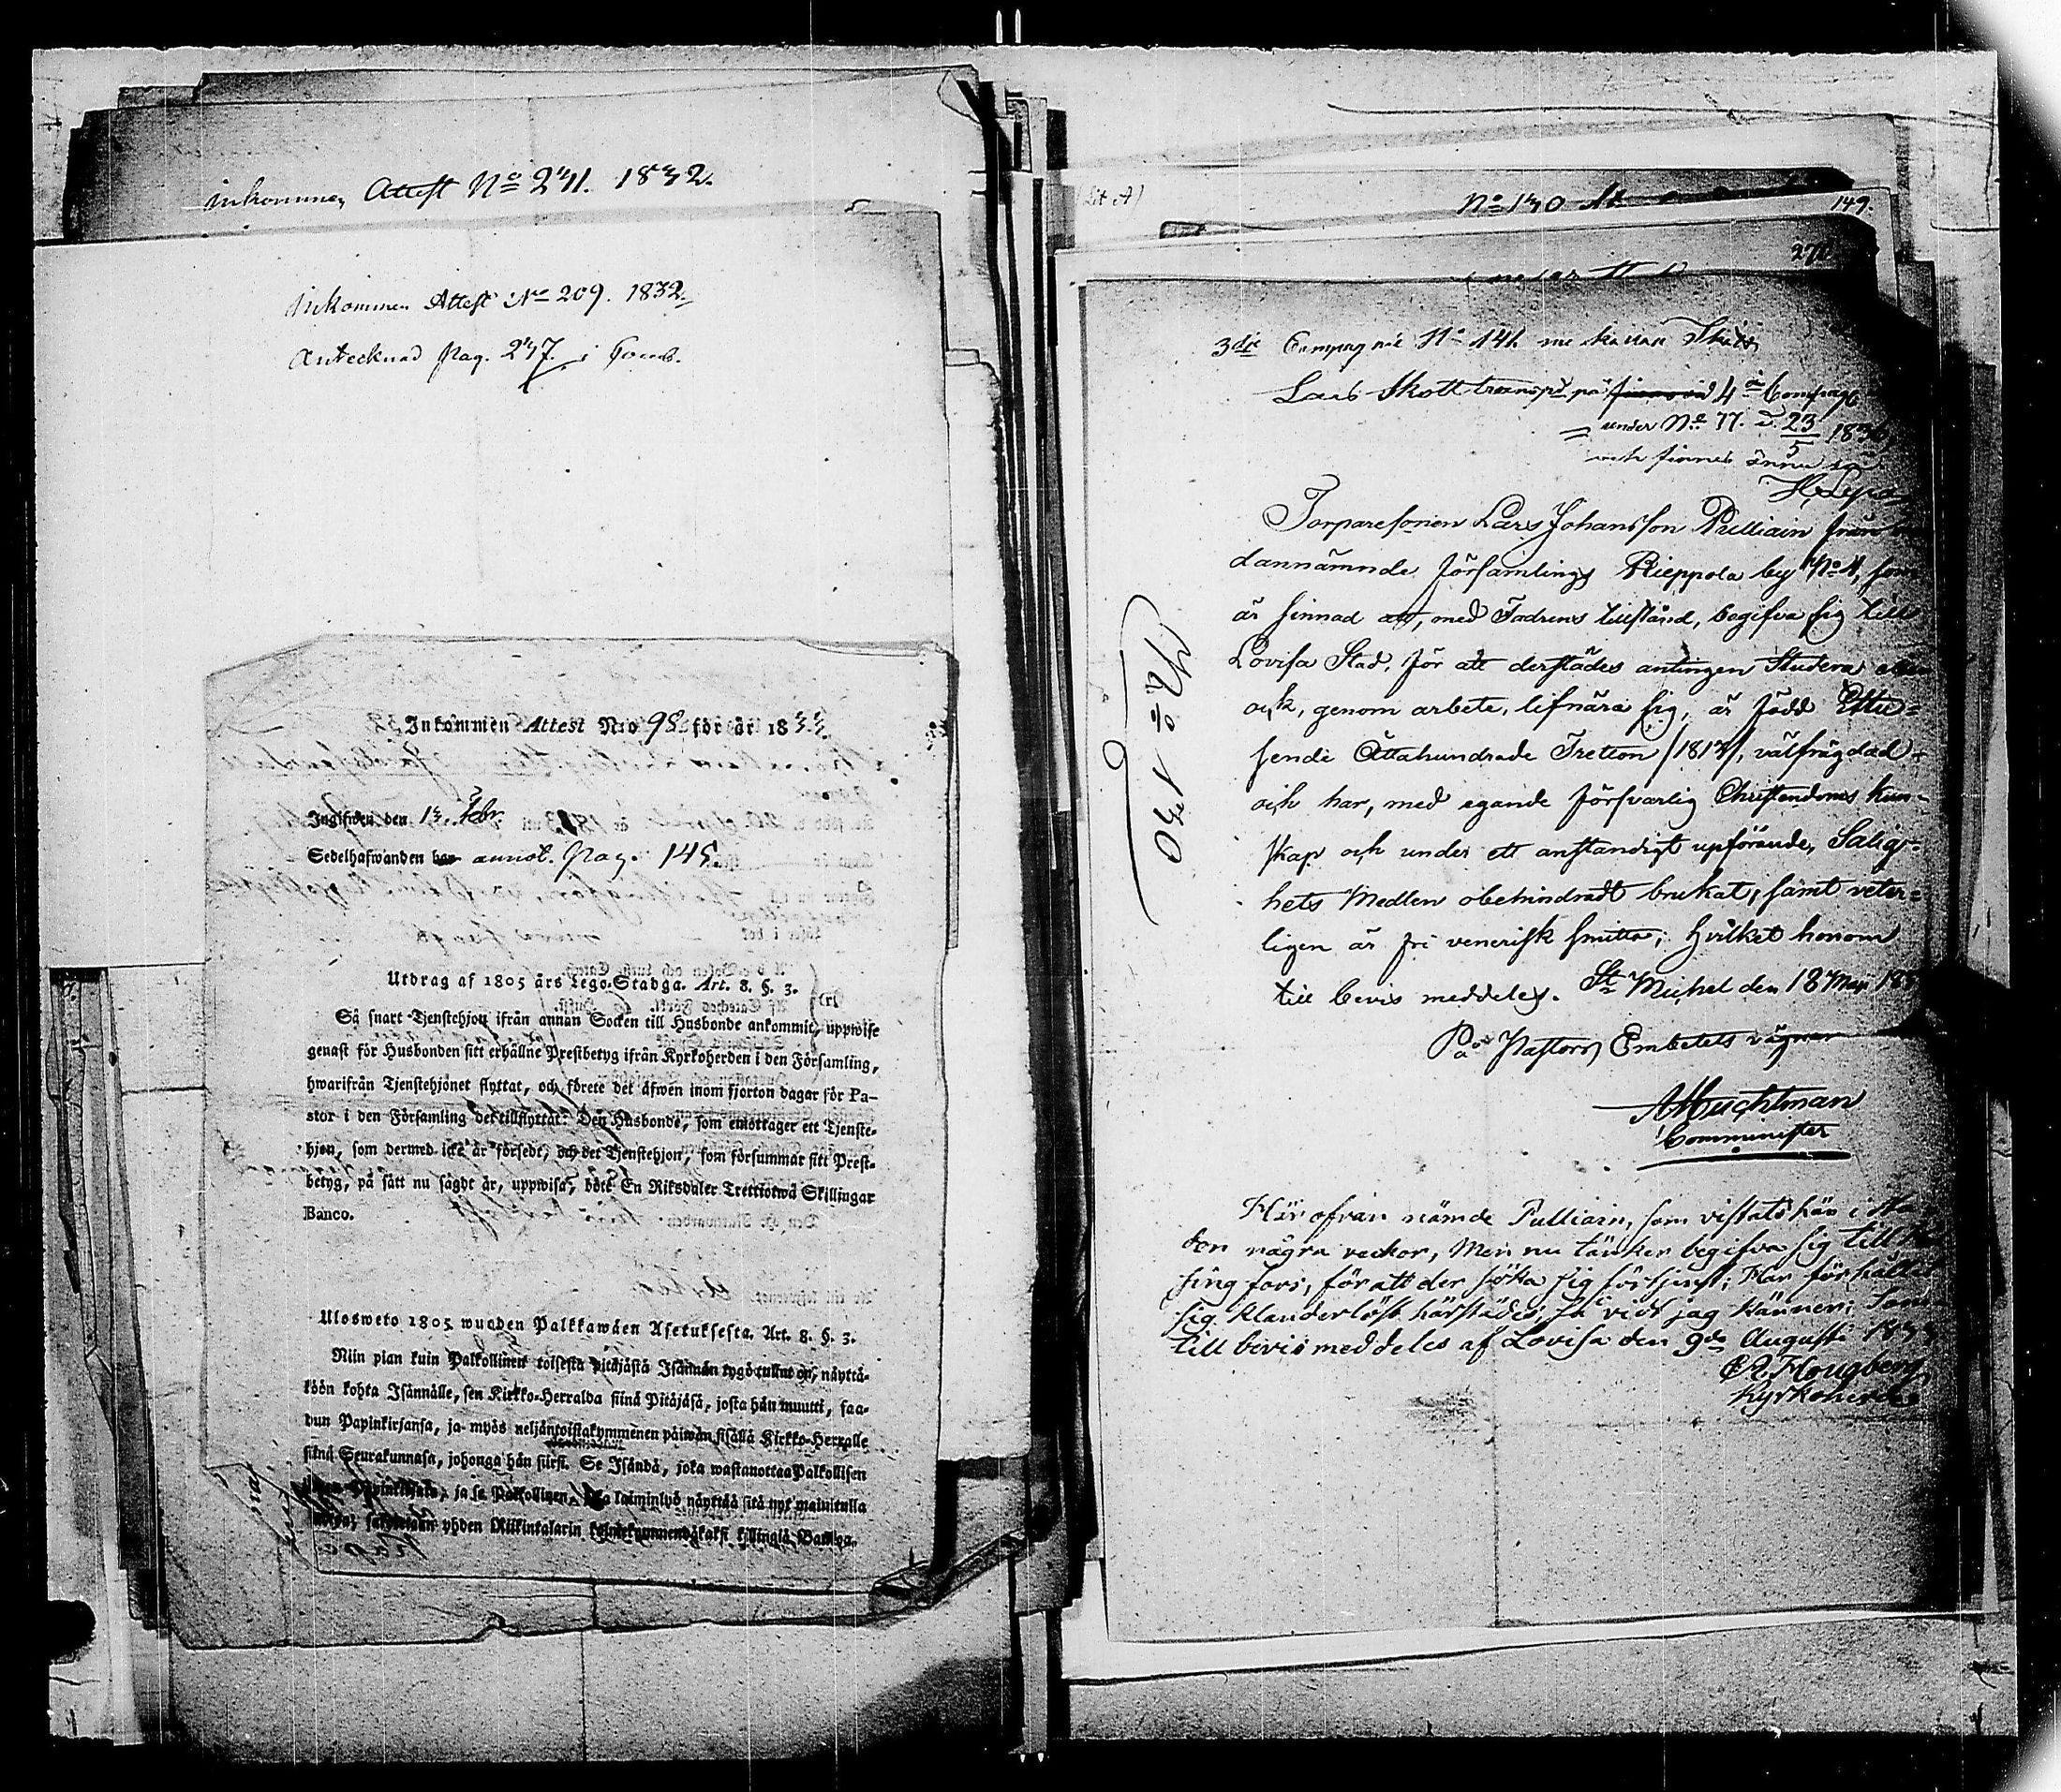 inkommen Attest No 241. 1832.
inkommen Attest No 209. 1832.
Antecknad pag. 247. i
Inkommen Attest N:o 98 för år 1833
Ingifwen den 13. Febr.
Sedelhafwanden har annot. pag. 145.
Utdrag af 1805 års Lego-Stadga. Art. 8. §. 3.
Så snart Tjenstehjon ifrån annan Socken till Husbonde ankommit, uppwise
genast för Husbonden sitt erhållne Prestbetyg ifrån Kyrkoherden i den Församling,
hwarifrån Tjenstehjonet flyttat, och förete det äfwen inom fjorton dagar för Pa-
stor i den Församling det tillflyttat. Den Husbonde, som emottager ett Tjenste-
hjon, som dermed icke är försedt, och det Tjenstehjon, som försummar sitt Prest-
betyg, på sätt nu sagdt är, uppwisa, böte En Riksdaler Trettiotwå Skillingar
Banco.
Ulosweto 1805 wuoden Palkkawäen Asetuksesta. Art. 8. §. 3.
Niin pian kuin Palkollinen toisesta pitäjästä Isännän tygö tullut on, näyttä-
köön kohta Isännälle, sen Kirkko-Herralda siinä Pitäjäsä, josta hän muutti, saa-
dun Papinkirjansa, ja myös neljäntoistakymmenen päiwän sisällä Kirkko-Herralle
siinä Seurakunnasa, johonga hän siirsi. Se Isändä, joka wastanottaa Palkollisen
Papinkirjata, ja se Palkollinen, joka laiminlyö näyttää sitä nyt mainitulla
yhden Riikintalarin kolmekymmendäkaksi killingiä Bankoa.
(Lit A)
No 130
149.
271
3dje Compagnie No 141.
Lars Skott transp. på finns vid 4de Compag
under No 77. d. 23/5 183
och finnes ännu
Torparesonen Lars Johansson Pulliain från
dannämnde församlings Rieppola by No 1, som
är sinnad att, med Fadrens tillstånd, begifva sig till
Lovisa Stad, för att derstädes antingen Studera eller
ock, genom arbete, lifnära sig, är född Ettu=
sende Åttahundrade Tretton /1813/, välfrägdad
och har, med egande försvarlig Christendoms kun-
skap och under ett anständigt upförande, Salig-
hets Medlen obehindradt brukat, samt veter=
ligen är fri venerisk smitta; hvilket honom
till bevis meddeles. St Michel den 18 Maji 183
På Pastors Embetets vägnar
Comminister
No 130
Här ofvan nämde Pulliain, som vistats här i Sta
den några veckor, Men nu tänker begifva sig till
sing fors, för att der söka sig förtjenst; Har förhållit
sig klanderlöst härstädes, så vidt jag känner; Som
till bevis meddeles af Lovisa den 9de Augusti 183
Kyrkoherde